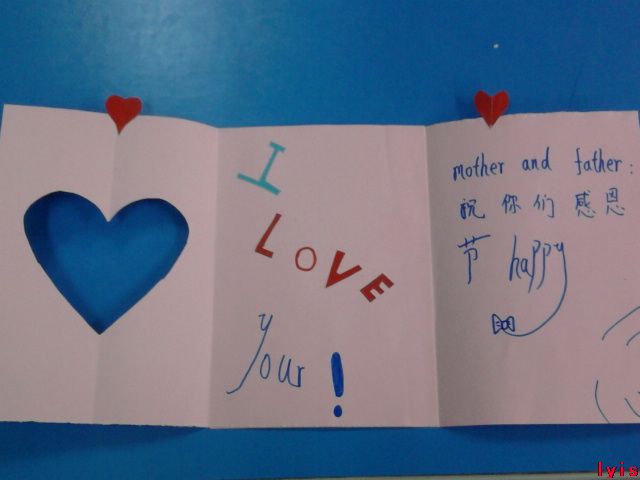 I
LOVE
Your!
mother and father:
祝你们感恩
节 happy
lyis